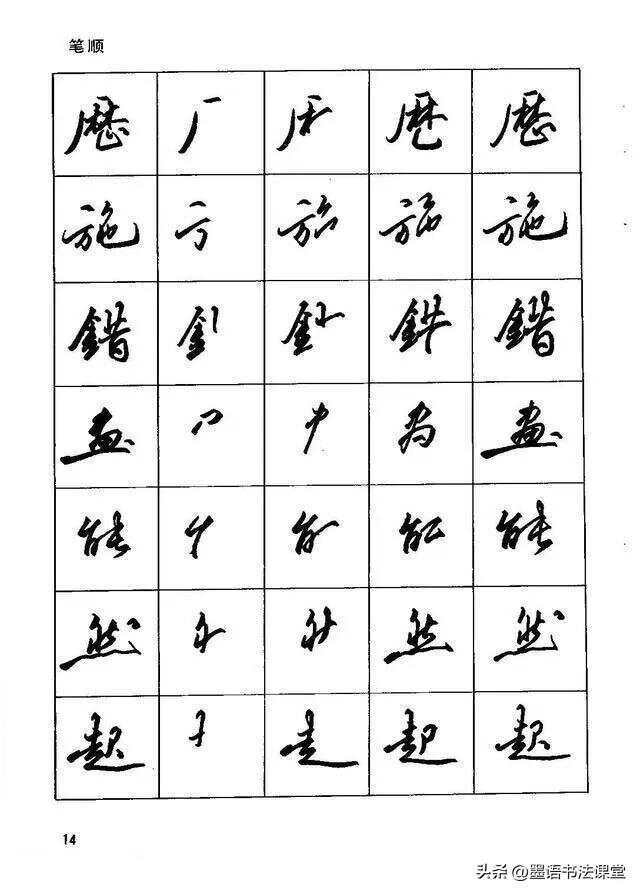 笔顺
歷 厂 歷
施 施
錯 錯
畫 畫
能 能
然 然
起 走 起
14
头条 @墨语书法课堂